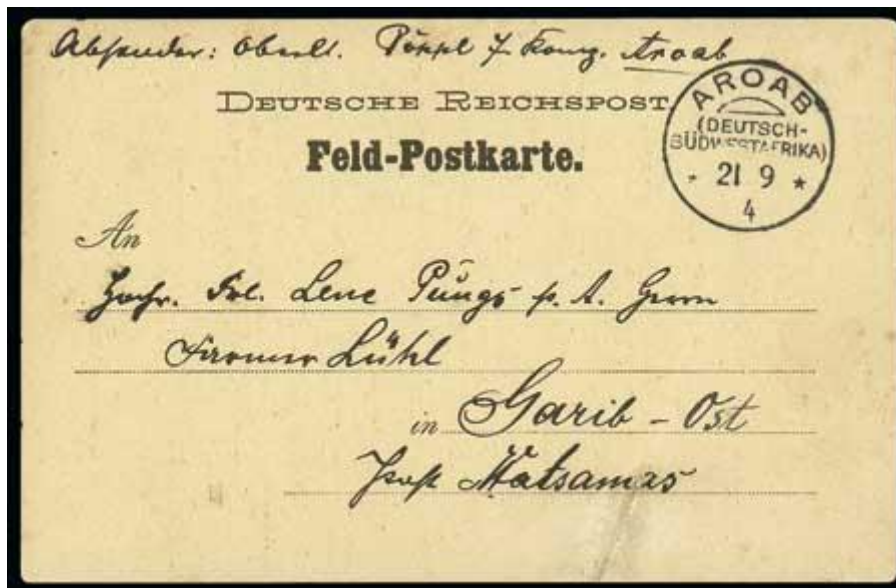 Absender: Oberlt. Pöppl 7. Komp. Aroab
DEUTSCHE REICHSPOST
Feld-Postkarte.
AROAB
(DEUTSCH-
SÜDWESTAFRIKA)
* 21 9 *
4
An
Frl. Lene Püngs p. A. Herrn
Farmer Lühl
in Garib - Ost
Post Matsamas